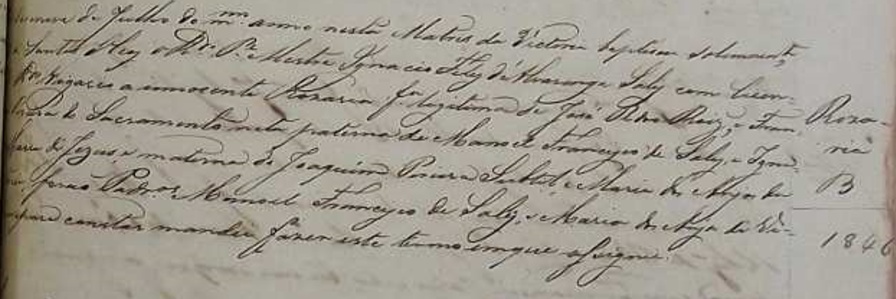 de Julho do mmo anno nesta Matris da Victoria baptisou solemnente
Santos Oleos o Rdo Pe Mestre Ignacio Felis d'Alvarenga Sales com licen-
Rdo Vigario a innocente Rozaria fa legitima de José Pedro e Fran-
do Sacramento neta paterna de Manoel Francisco de Sales, e Igna-
de Jezus, e materna de Joaquim Pereira e Maria dos Anjos da
forão Padros Manoel Francisco de Sales, e Maria dos Anjos da Vi-
para constar mandei fazer este termo emque assignei.
Roza-
ria
B
1846